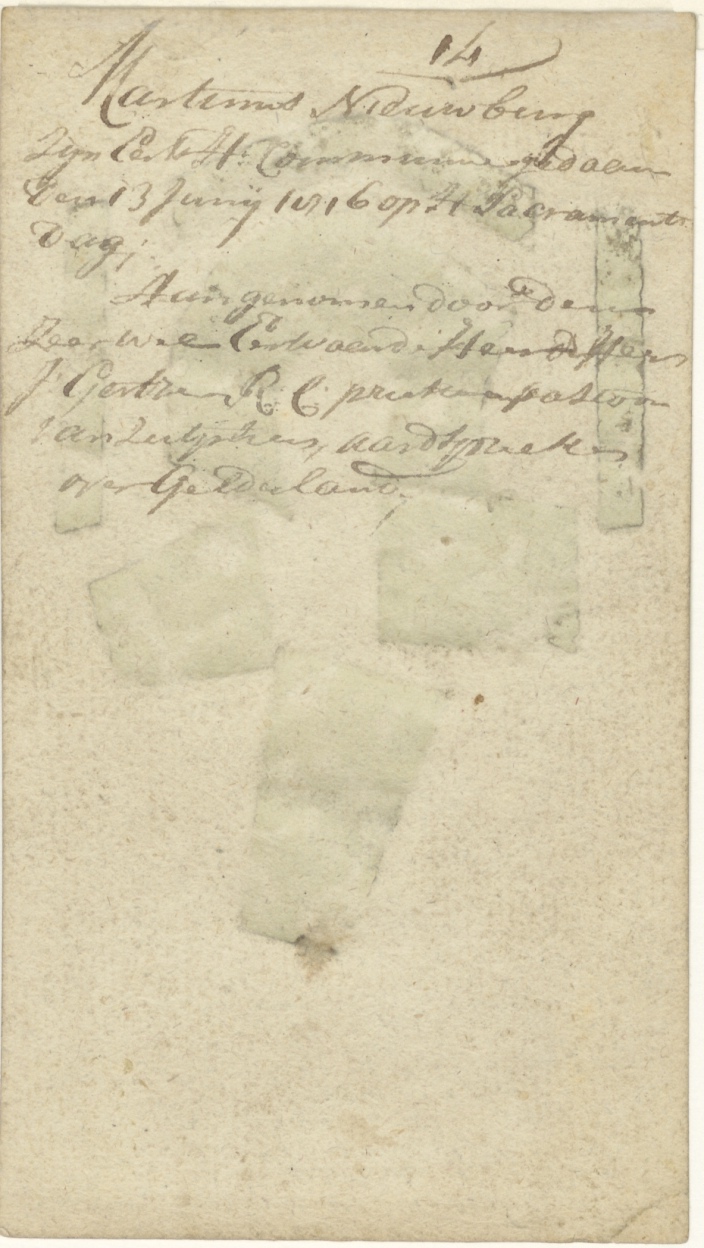 14
Martinus Nieuwburg
Zyn Eerste H. Communie gedaan
den 13 Junij 1816 op H Sacraments
Dag;
Aangenomen door den
Zeer wel Eerwaarde Heer de Heer
J R C priester pastoor
van aardspriester
over Gelderland,